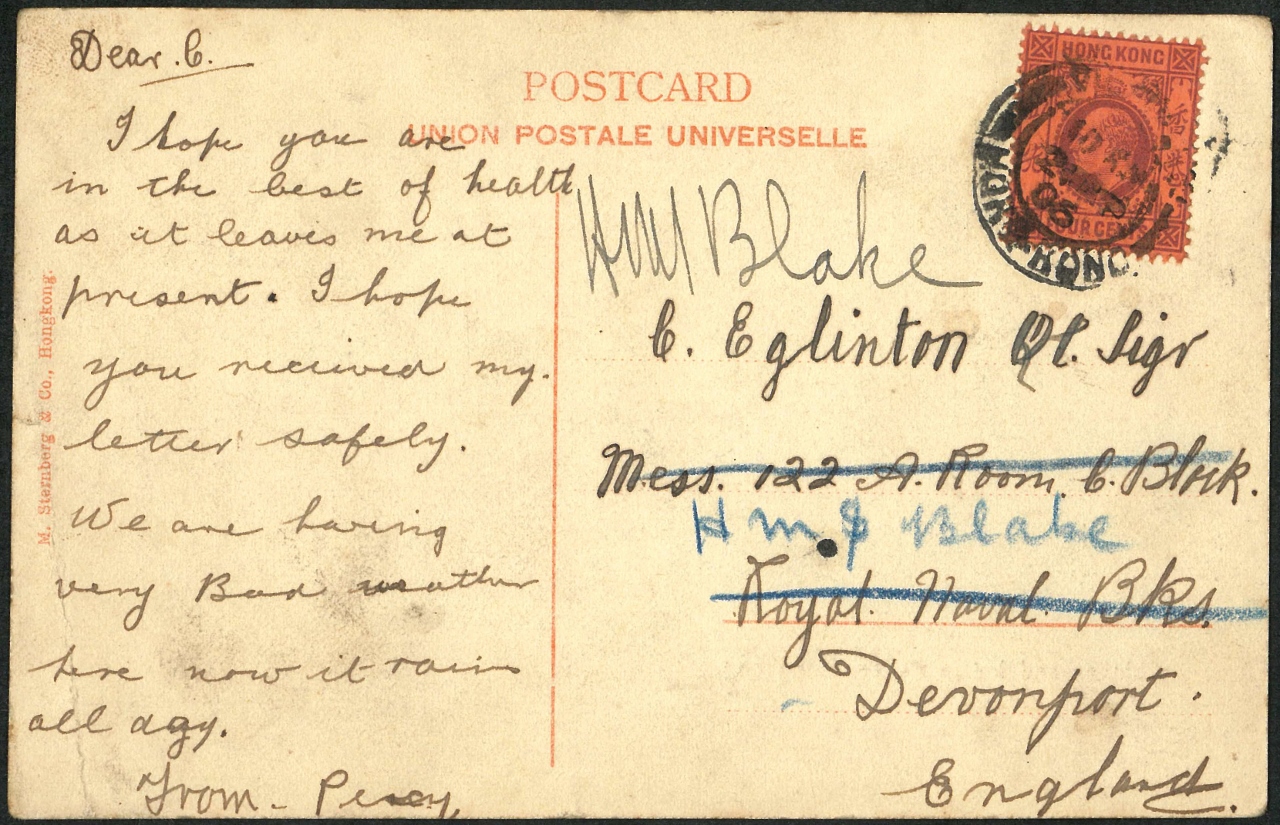 Dear. C.
POSTCARD
UNION POSTALE UNIVERSELLE
I hope you are
in the best of health
as it leaves me at
present. I hope
you received my.
letter safely.
We are having
very Bad weather
here now it rains
all day.
From - Percy.
M. Sternberg & Co., Hongkong.
HONG KONG
香港
FOUR CENTS
HONG KONG
10 AM
05
HMS Blake
C. Eglinton Ql. Sigr
Mess. 122 A. Room. C. Block.
HMS Blake
Royal. Naval Bks.
Devonport.
England.